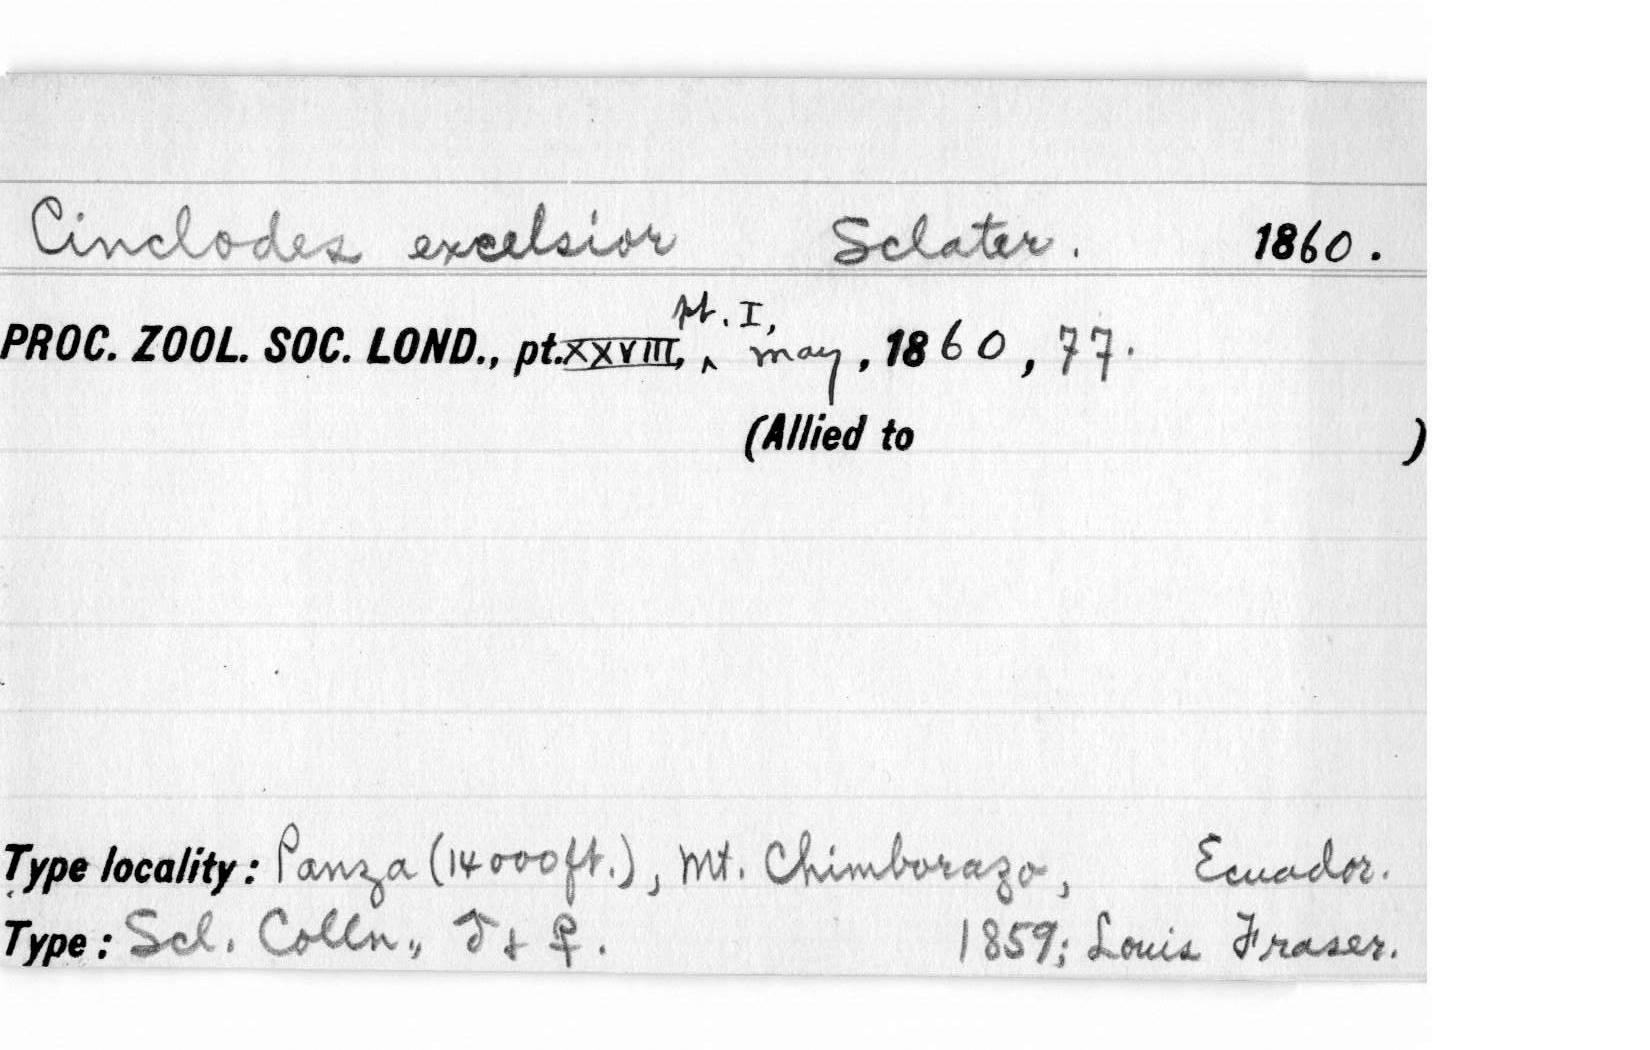 Cinclodes excelsior Sclater. 1860.
PROC. ZOOL. SOC. LOND., pt. XXVIII, pt. I, May, 1860, 77.
(Allied to )
Type locality: Panza (14000ft.), Mt. Chimborazo, Ecuador.
Type: Scl. Colln., ♂ + ♀. 1859; Louis Fraser.